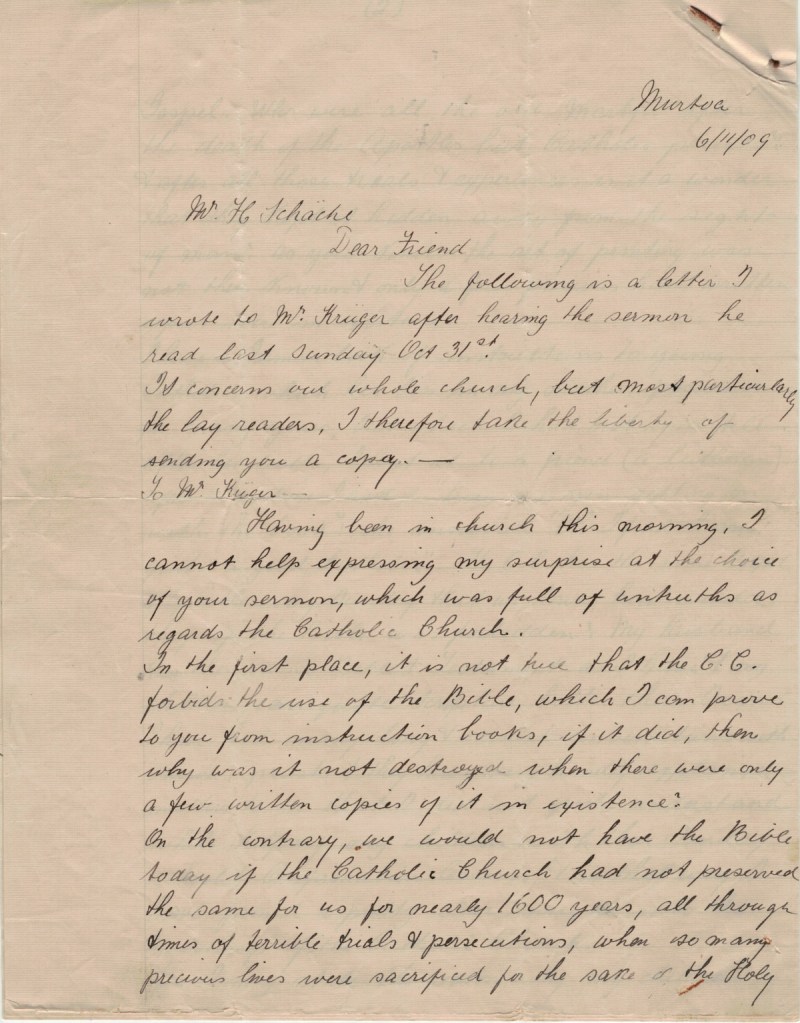 Murtoa
6/11/09
Mr. H Schäche
Dear Friend
The following is a letter I
wrote to Mr. Krüger after hearing the sermon he
read last Sunday Oct 31st.
It concerns our whole church, but most particularly
the lay readers, I therefore take the liberty of
sending you a copy. —
To Mr. Krüger —
Having been in church this morning, I
cannot help expressing my surprise at the choice
of your sermon, which was full of untruths as
regards the Catholic Church.
In the first place, it is not true that the C. C.
forbids the use of the Bible, which I can prove
to you from instruction books, if it did, then
why was it not destroyed when there were only
a few written copies of it in existence?
On the contrary, we would not have the Bible
today if the Catholic Church had not preserved
the same for us for nearly 1600 years, all through
times of terrible trials & persecutions, when so many
precious lives were sacrificed for the sake of the Holy